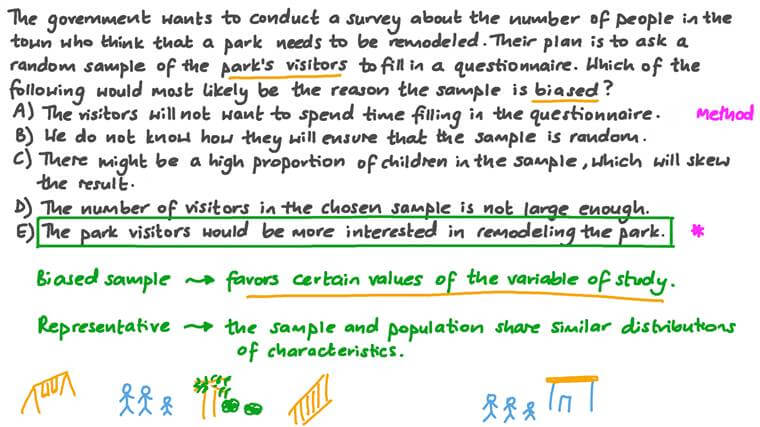 The government wants to conduct a survey about the number of people in the
town who think that a park needs to be remodeled. Their plan is to ask a
random sample of the park's visitors to fill in a questionnaire. Which of the
following would most likely be the reason the sample is biased?
A) The visitors will not want to spend time filling in the questionnaire. Method
B) We do not know how they will ensure that the sample is random.
C) There might be a high proportion of children in the sample, which will skew
the result.
D) The number of visitors in the chosen sample is not large enough.
E) The park visitors would be more interested in remodeling the park. *
Biased sample → favors certain values of the variable of study.
Representative → the sample and population share similar distributions
of characteristics.